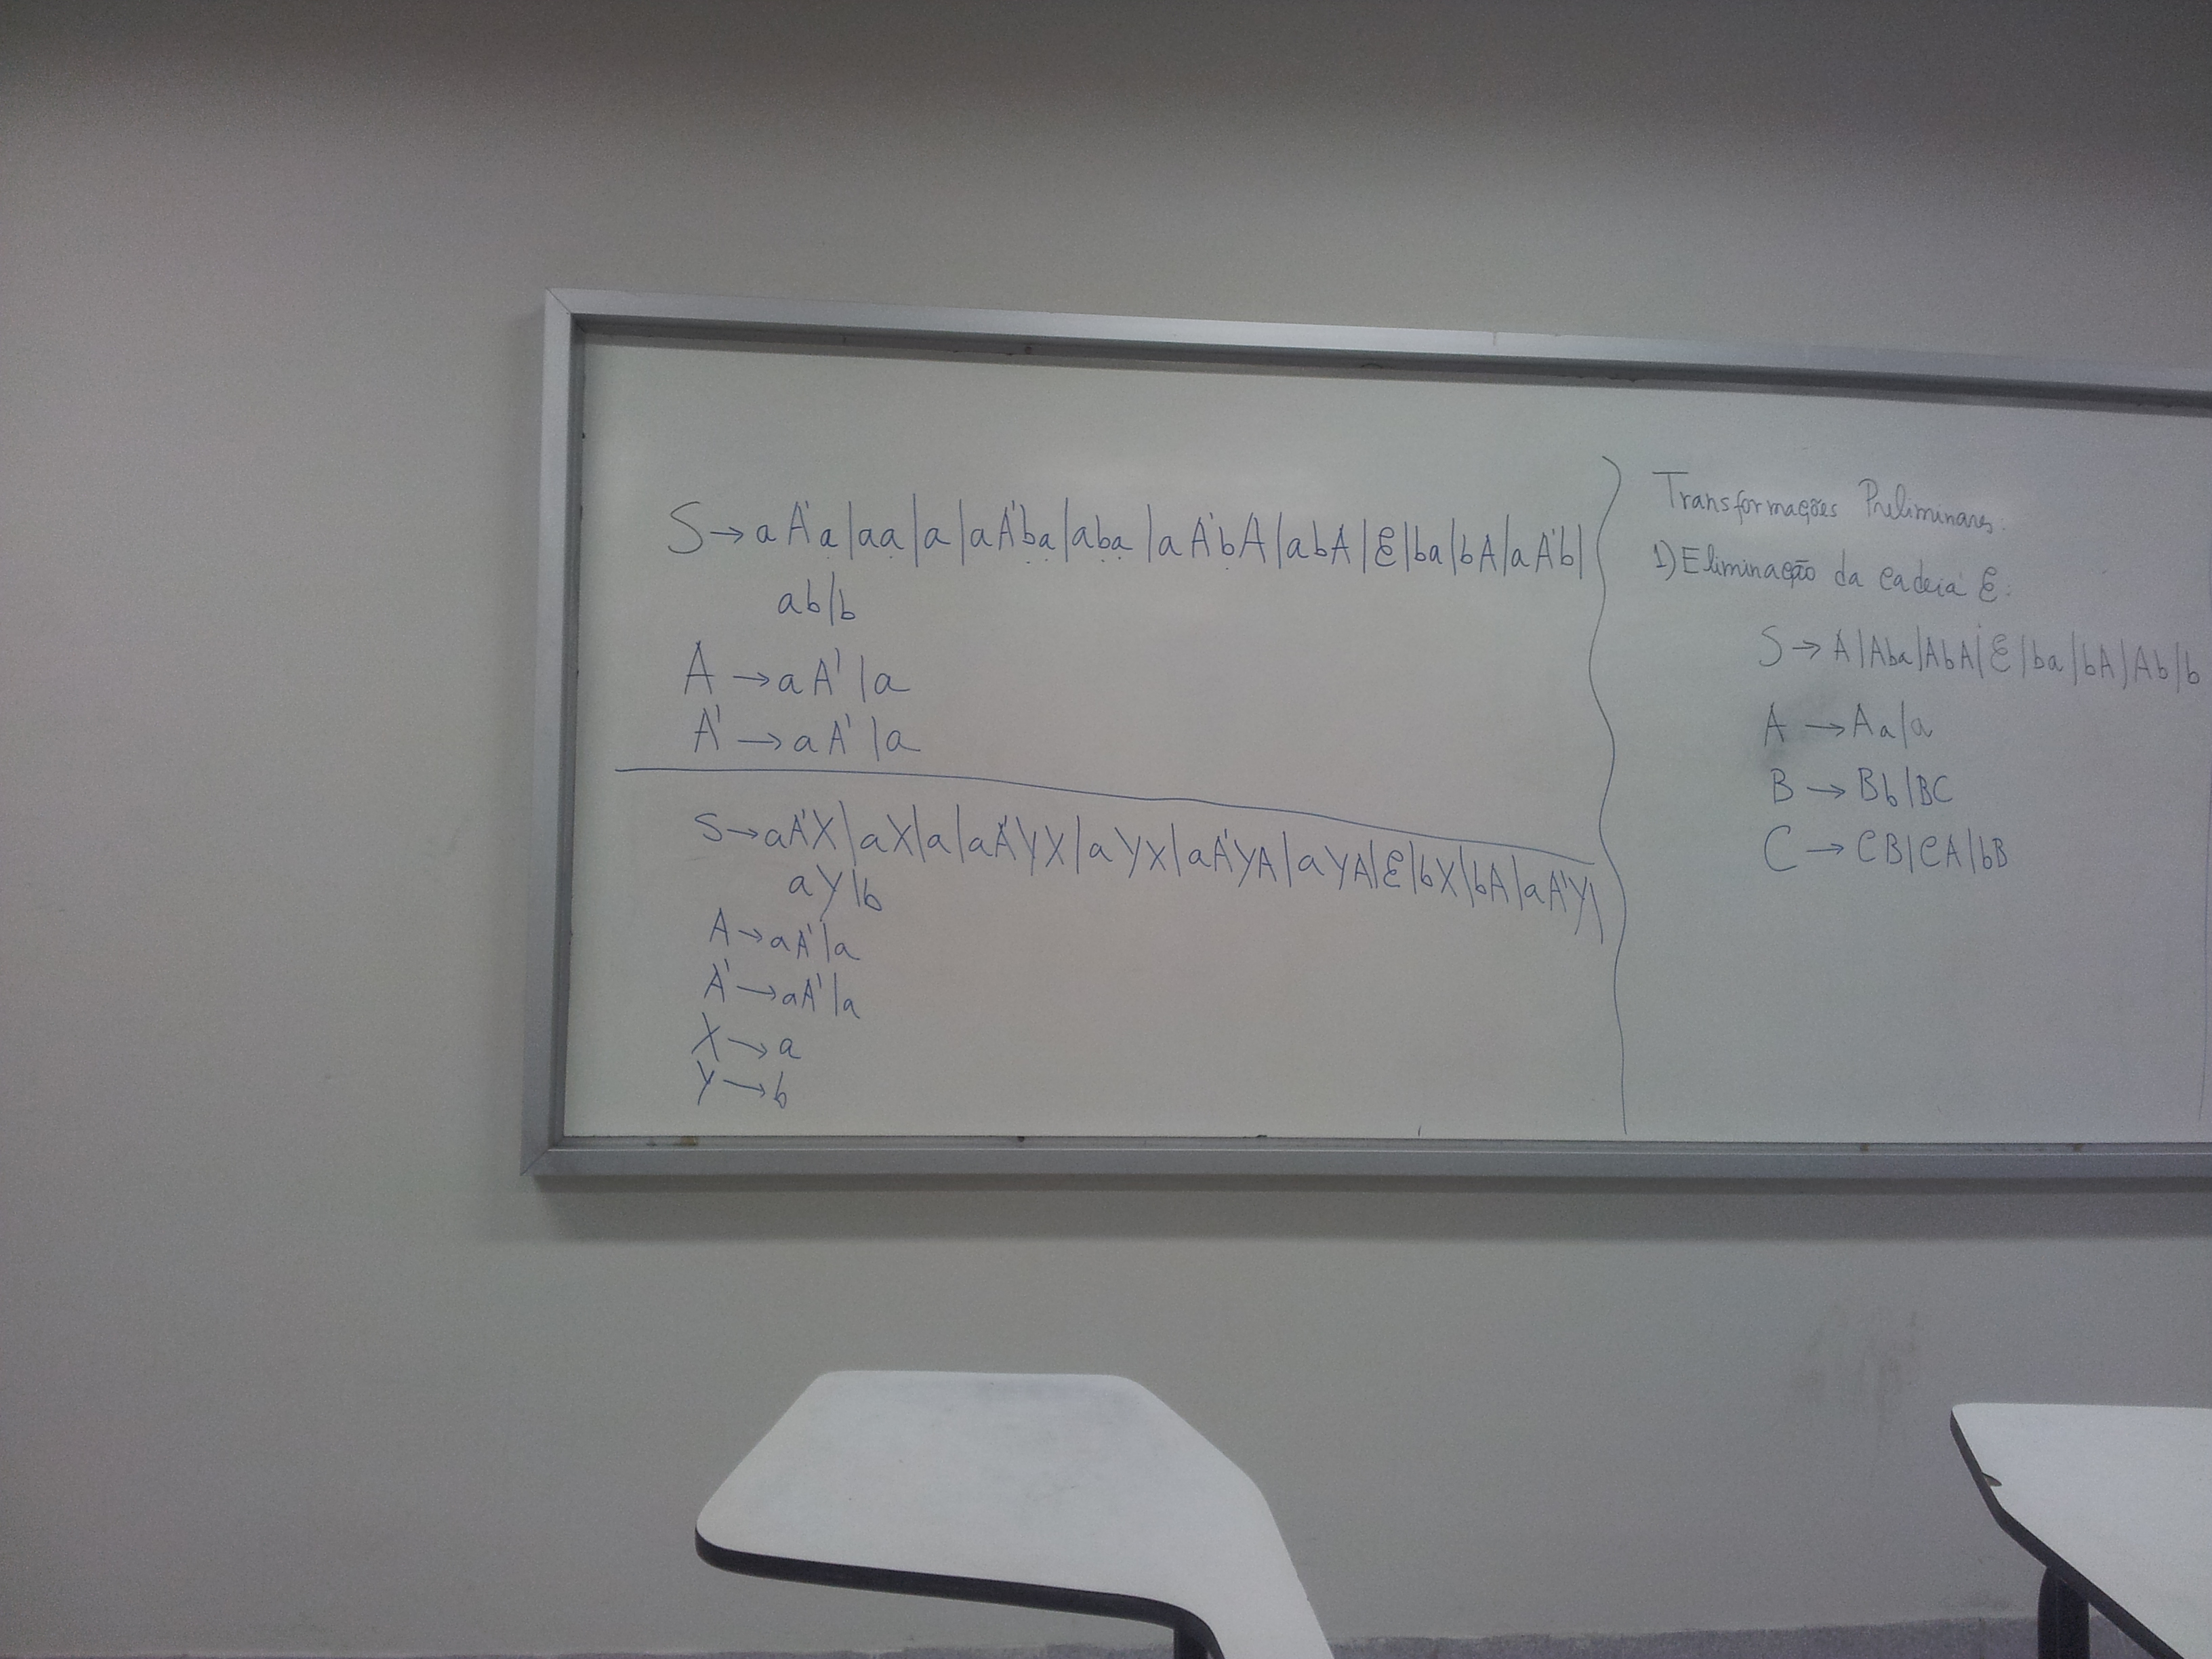 S → aA'a|aa|a|aA'ba|aba|aA'bA|abA|ε|ba|bA|aA'b|
ab|b
A → aA'|a
A' → aA'|a
S → aA'X|aX|a|aA'YX|aYX|aA'YA|aYA|ε|bX|bA|aA'Y|
aY|b
A → aA'|a
A' → aA'|a
X → a
Y → b
Transformações Preliminares:
1) Eliminação da cadeia ε:
S → A|Aba|AbA|ε|ba|bA|Ab|b
A → Aa|a
B → Bb|BC
C → CB|CA|bB